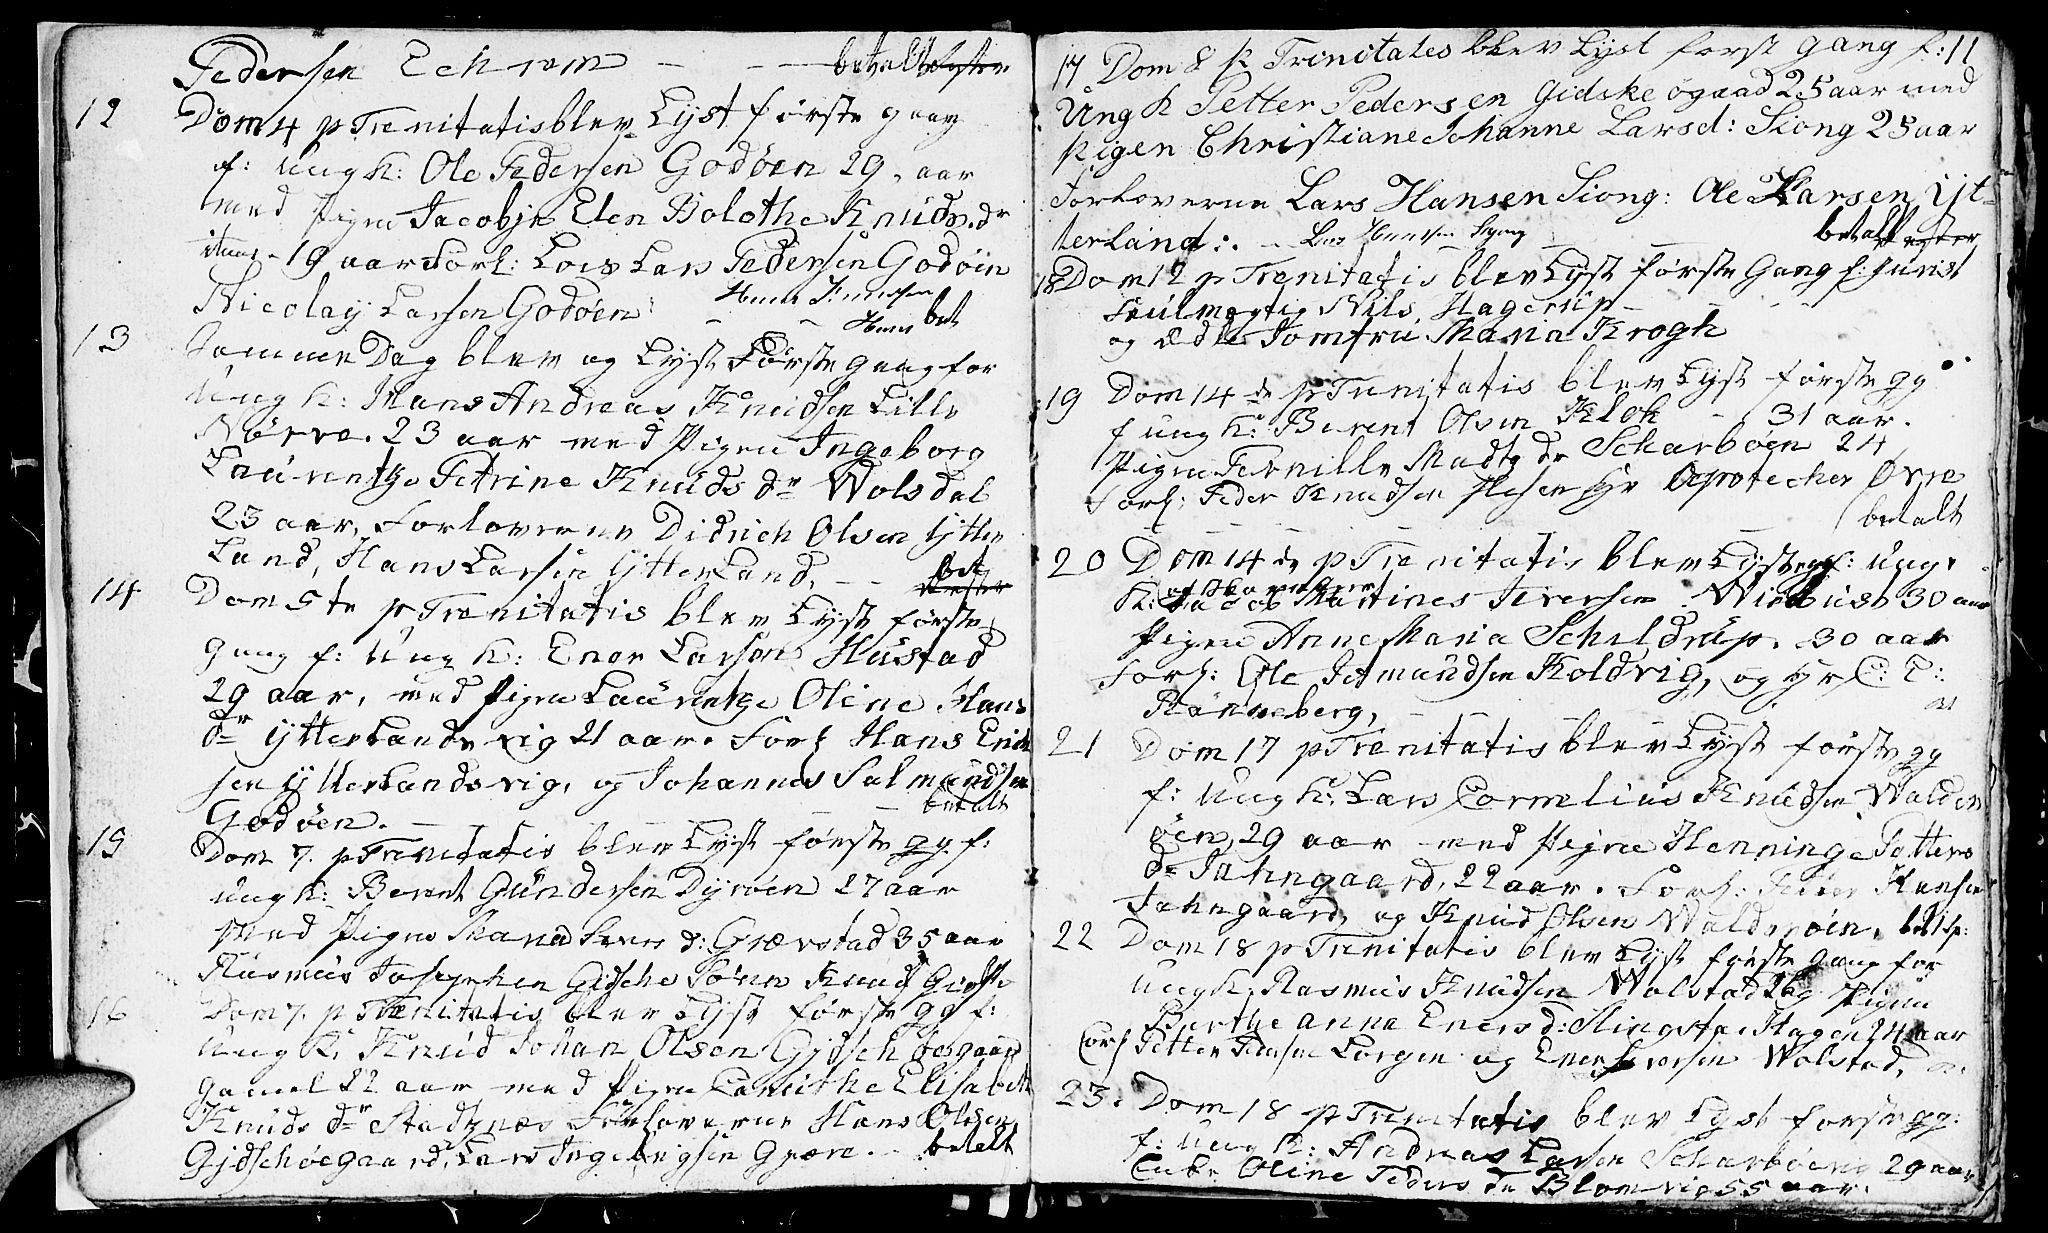 Pedersen Echrem - - betalt
12 Dom 4 p Trenitatis blev Lyst første gang
f: Ung k: Ole Pedersen Godøen 29, aar
med Pigen Jacobje Elen Bolethe Knuds dr
19 aar Forl: Lars Pedersen Godøen
Nicolay Larsen Godøen
bet
13 Samme Dag blev og Lyst Første gang for
Ung k: Hans Andreas Knudsen Lille
Nørve. 23 aar med Pigen Ingeborg
Laurentze Petrine Knuds dr Wolsdal
23 aar, Forloverne Didrich Olsen Ytter
Land, Hans Larsen Ytterland, - - bet
14 Dom 5te p Trenitatis blev Lyst første
gang f: Ung k: Enor Larsen Hustad
29 aar, med Pigen Laurentze Oline Hans
dr Ytterlandsvig 21 aar. Forl Hans Erich
sen Ytterlandsvig, og Johannes Salmundsen
Godøen. - - - betalt
15 Dom 7. p Trenitatis blev Lyst første gg. f:
ung k: Bernt Gundersen Dyrøen 27 aar
med Pigen d: Grævstad 35 aar
Rasmus Josephsen Gidsche Søren Knuds Gidsche
16 Dom 7. p Trenitatis blev Lyst første gg f:
Ung k: Knud Johan Olsen Gjdsch øegaard
gamel 22 aar med Pigen Elisabeth
Knuds dr Stadsnæs Forloverne Hans Olsen
Gjdschøegaard, Lars Ingebrigsen Gjære. - betalt
17 Dom 8 p Trinitates blev Lyst først gang f: 11
Ung k Petter Pedersen Gidske øgaad 25 aar med
Pigen Christiane Johanne Larsd: Siong 25 aar
Forloverne Lars Hansen Siong: Ole Larsen Yt-
terland:. - betalt
18 Dom 12 p Trenitatis blev Lyst første Gang f: Jurist
Fuldmegtig Nils Hagerup -
og ædle Jomfru Maria Krogh
19 Dom 14 de p Trenitatis blev Lyst første gg
f ung k: Berent Olsen Klok - 31 aar.
Pigen Pernille Madtz dr Scharbøen 24
Forl: Peder Knudsen Apotecher Øvre
betalt
20 Dom 14 de p Trenitatis blev Lyst gg f: Ung
k: Jacob Martines Iversen 30 aar
Pigen Anne Maria Scheldrup. 30 aar
Forl: Ole Koldvig, og Hr C: T:
Rønneberg,
21 Dom 17 p Trenitatis blev Lyst første gg
f: Ung k: Lars Cornelius Knudsen Walder
øen, 29 aar med Pigen Henninge Petters
dr Jahngaard, 22 aar. Forl: Petter Hansen
Jahngaard, og Knud Olsen Walderøen. bet
22 Dom 18 p Trenitatis blev Lyst første Gang for
Ung k: Rasmus Knudsen Wolstad 26 Pigen
Berthe Anna Eners d: Slingsta Hagen 24 aar
Forl Petter Lorgen og Ener Iversen Wolstad,
23. Dom 18 p Trenitatis blev Lyst første gg:
f: Ung k: Andreas Larsen Scharbøen 29 aar
Enke Oline Peders dr Blomvig 55 aar.